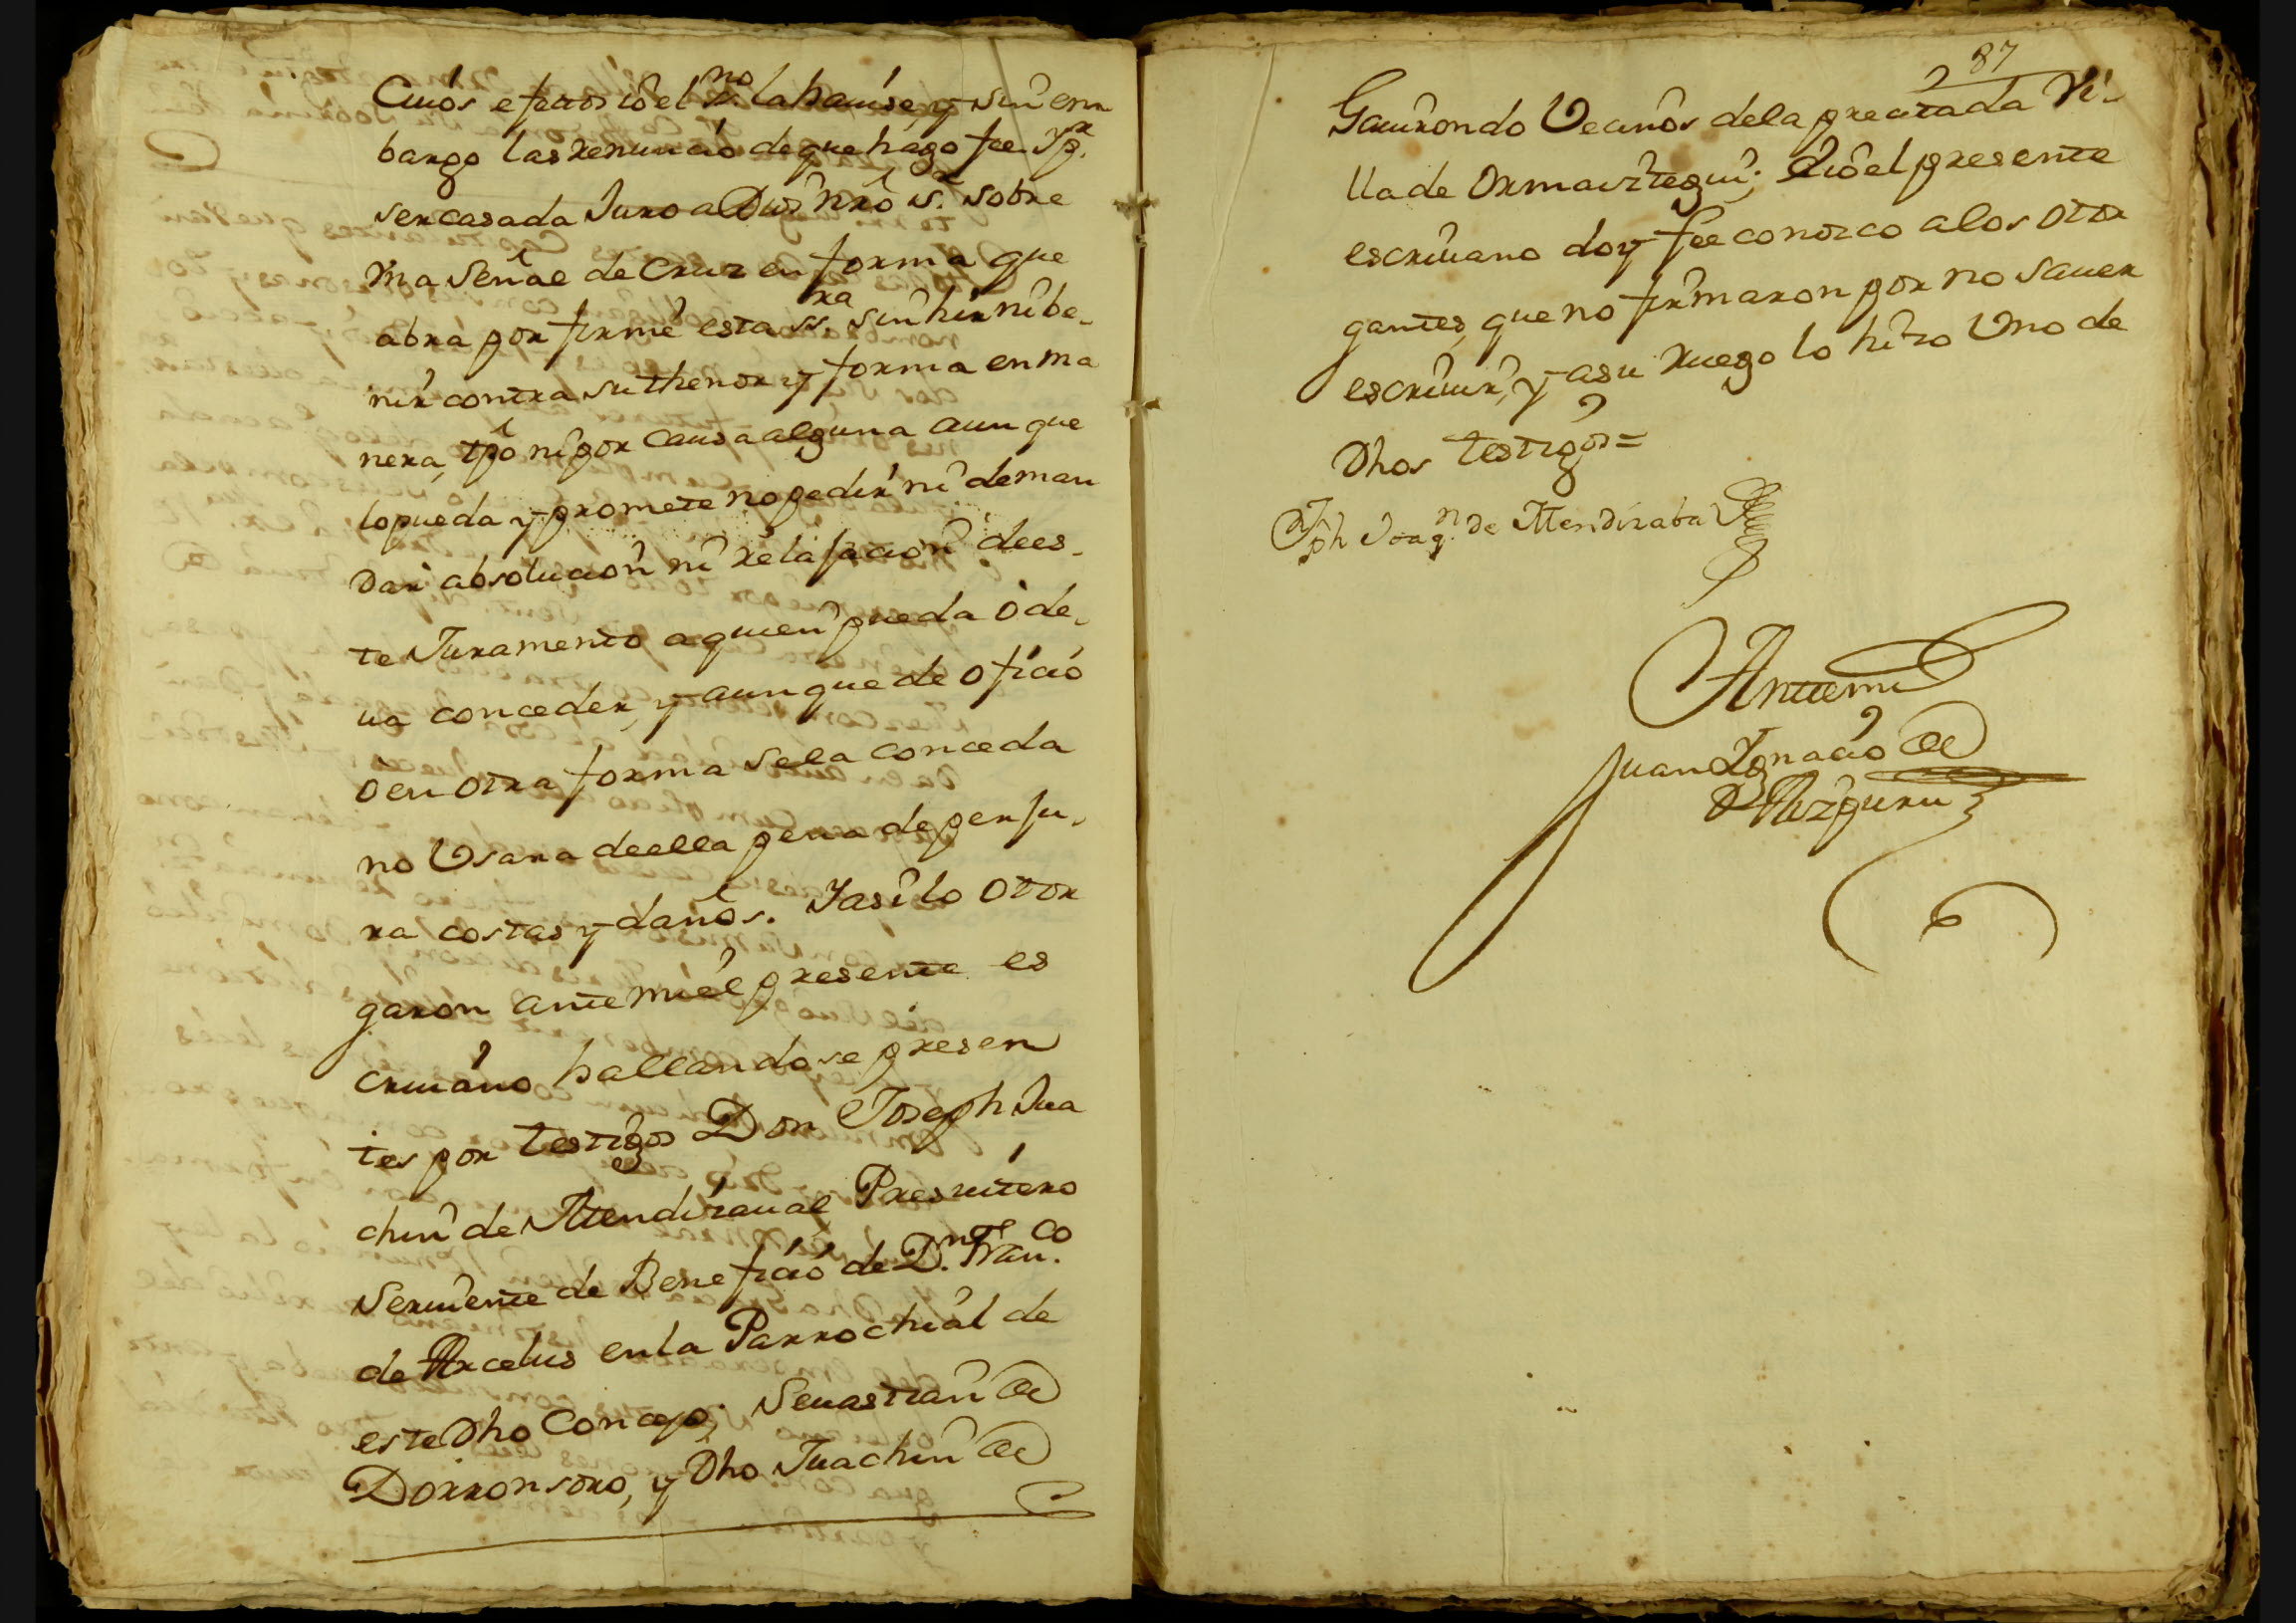 Cuios efectos io el ss.no la havise y sin em
bargo las renuncio de que hago fee. Y p.r
ser casada Juro a Dios nrô s.r sobre
Vna Señal de Cruz en forma que
abra por firme esta ss.ra sin hir ni be-
nir contra su thenor y forma en ma
nera, tpô ni por causa alguna aun que
lo pueda y promete no pedir ni deman
dar absolucion ni relajacion de es-
te Juramento a quien pueda ó de-
va conceder, y aunque de oficio
o en otra forma se la conceda
no Vsara de ella pena de perju-
ra costas y daños. Y asi lo otor
garon ante mi el presente es
crivano hallandose presen
tes por testigos Don Joseph Jua
chin de Mendizaval Presvitero
Serviente de Beneficio de D.n Fran.co
de Arcelus en la Parrochial de
este Dho Concejo; Sevastian de
Dorronsoro, y Dho Juachin de
87
2
Gavirondo Vecinos de la precitada Vi-
lla de Ormaiztegui; È io el presente
escrivano doy fee conozco a los otor
gantes, que no firmaron por no saver
escrivir, y a su ruego lo hizo Vno de
Dhos testigos=
Jph Joaq.n de Mendizabal
Ante mi
Juan Ignacio de
Aizpuru